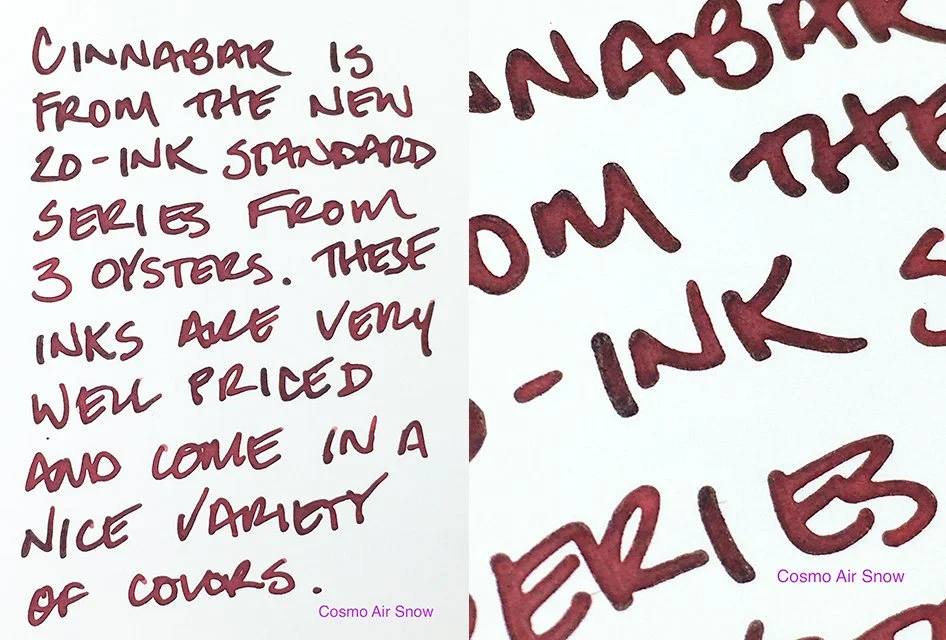 CINNABAR IS
FROM THE NEW
20-INK STANDARD
SERIES FROM
3 OYSTERS. THESE
INKS ARE VERY
WELL PRICED
AND COME IN A
NICE VARIETY
OF COLORS.
Cosmo Air Snow
NNABAR
OM THE
-INK S
SERIES
Cosmo Air Snow